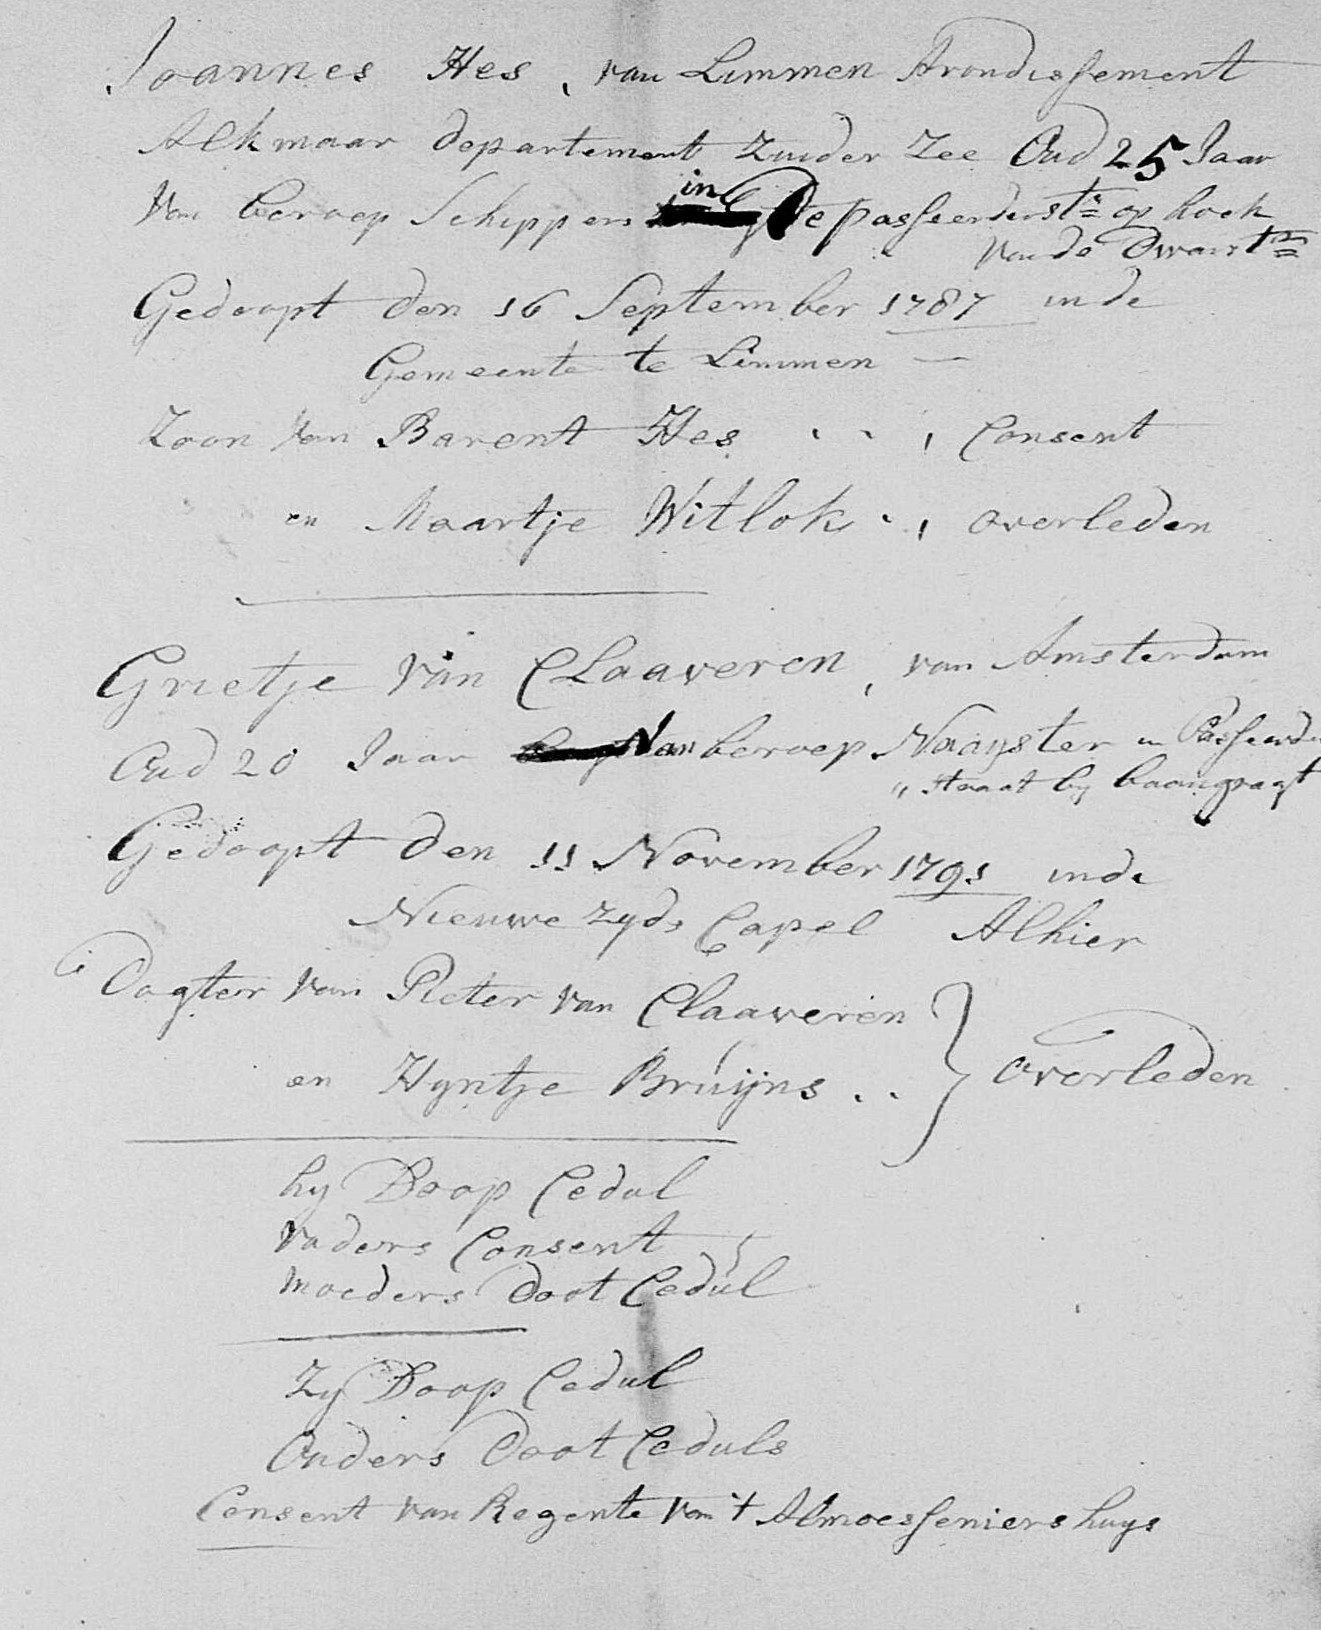 Joannes Hes, van Limmen Arondissement
Alkmaar departement Zuider Zee Oud 25 Jaar
Van beroep Schippers in de passeerderst= op hoek
van de Dwarst=
Gedoopt den 16 September 1787 in de
Gemeente te Limmen —
Zoon Van Barent Hes . . , Consent
en Maartje Witlok . , overleden
Grietje Van Claaveren, van Amsterdam
Oud 20 Jaar Van beroep Naayster in Passeerder
" straat by baangragt
Gedoopt den 11 November 1791 in de
Nieuwe Zyds Capel Alhier
Dogter van Pieter van Claaveren
en Hyntje Bruijns . . } overleden
hy Doop Cedul
Vaders Consent
Moeders Doot Cedul
Zy Doop Cedul
Ouders Doot Ceduls
Consent van Regente van 't Almoesseniershuys